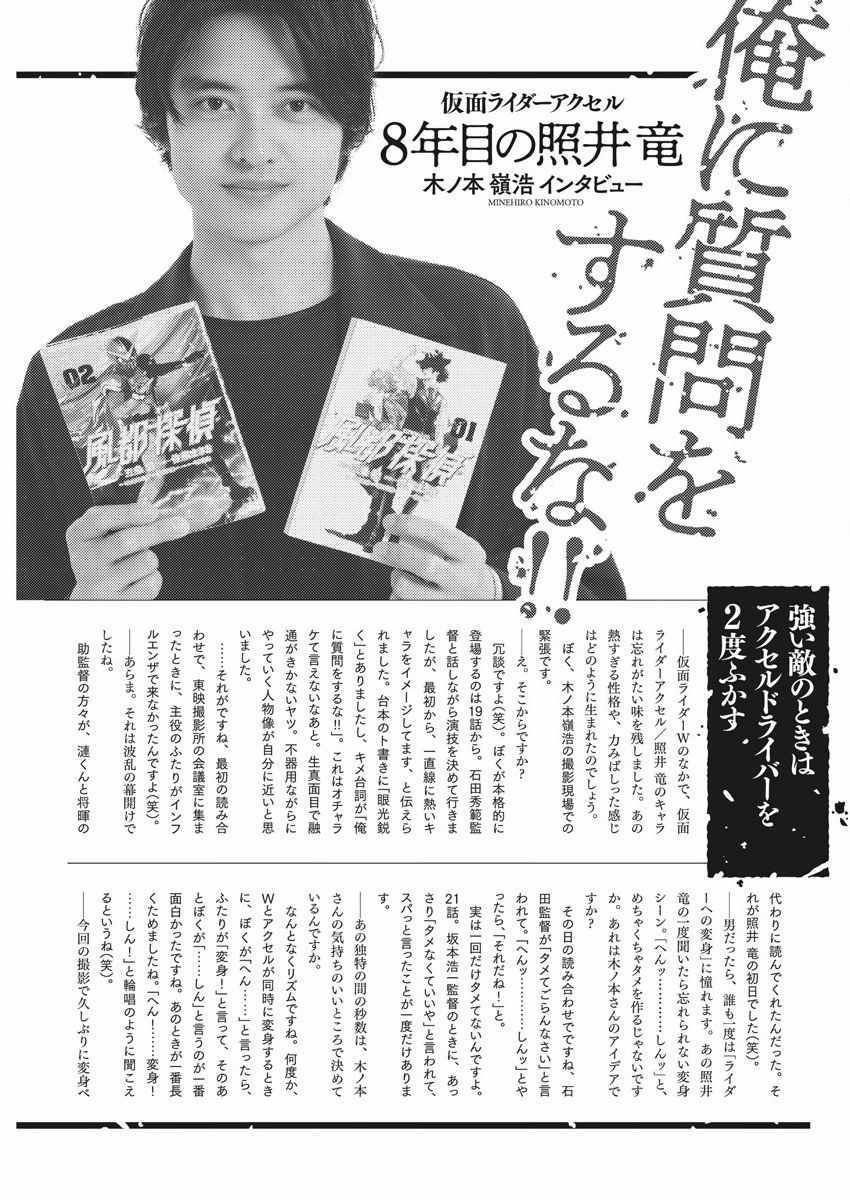 俺に質問を
するな!!
仮面ライダーアクセル
8年目の照井 竜
木ノ本 嶺浩 インタビュー
MINEHIRO KINOMOTO
02
風都探偵
01
風都探偵
強い敵のときは
アクセルドライバーを
2度ふかす
――仮面ライダーWのなかで、仮面
ライダーアクセル／照井 竜のキャラ
は忘れがたい味を残しました。あの
熱すぎる性格や、力みばしった感じ
はどのように生まれたのでしょう。
ぼく、木ノ本嶺浩の撮影現場での
緊張です。
――え。そこからですか?
冗談ですよ(笑)。ぼくが本格的に
登場するのは19話から。石田秀範監
督と話しながら演技を決めて行きま
したが、最初から、一直線に熱いキ
ャラをイメージしてます、と伝えら
れました。台本のト書きに「眼光鋭
く」とありましたし、キメ台詞が「俺
に質問をするな!!」。これはオチャラ
ケて言えないなあと。生真面目で融
通がきかないヤツ。不器用ながらに
やっていく人物像が自分に近いと思
いました。
……それがですね、最初の読み合
わせで、東映撮影所の会議室に集ま
ったときに、主役のふたりがインフ
ルエンザで来なかったんですよ(笑)。
――あらま。それは波乱の幕開けで
したね。
助監督の方々が、漣くんと将暉の
代わりに読んでくれたんだった。そ
れが照井 竜の初日でした(笑)。
――男だったら、誰も一度は「ライダ
ーへの変身」に憧れます。あの照井
竜の一度聞いたら忘れられない変身
シーン。「へんッ…………しんッ」と、
めちゃくちゃタメを作るじゃないです
か。あれは木ノ本さんのアイデアで
すか?
その日の読み合わせでですね、石
田監督が「タメてごらんなさい」と言
われて。「へんッ…………しんッ」とや
ったら、「それだね!」と。
実は一回だけタメてないんですよ。
21話。坂本浩一監督のときに、あっ
さり「タメなくていいや」と言われて、
スパっと言ったことが一度だけありま
す。
――あの独特の間の秒数は、木ノ本
さんの気持ちのいいところで決めて
いるんですか。
なんとなくリズムですね。何度か、
Wとアクセルが同時に変身するとき
に、ぼくが「へん……」と言ったら、
ふたりが「変身!」と言って、そのあ
とぼくが「……しん」と言うのが一番
面白かったですね。あのときが一番長
くためましたね。「へん!……変身!
……しん!」と輪唱のように聞こえ
るというね(笑)。
――今回の撮影で久しぶりに変身ベ